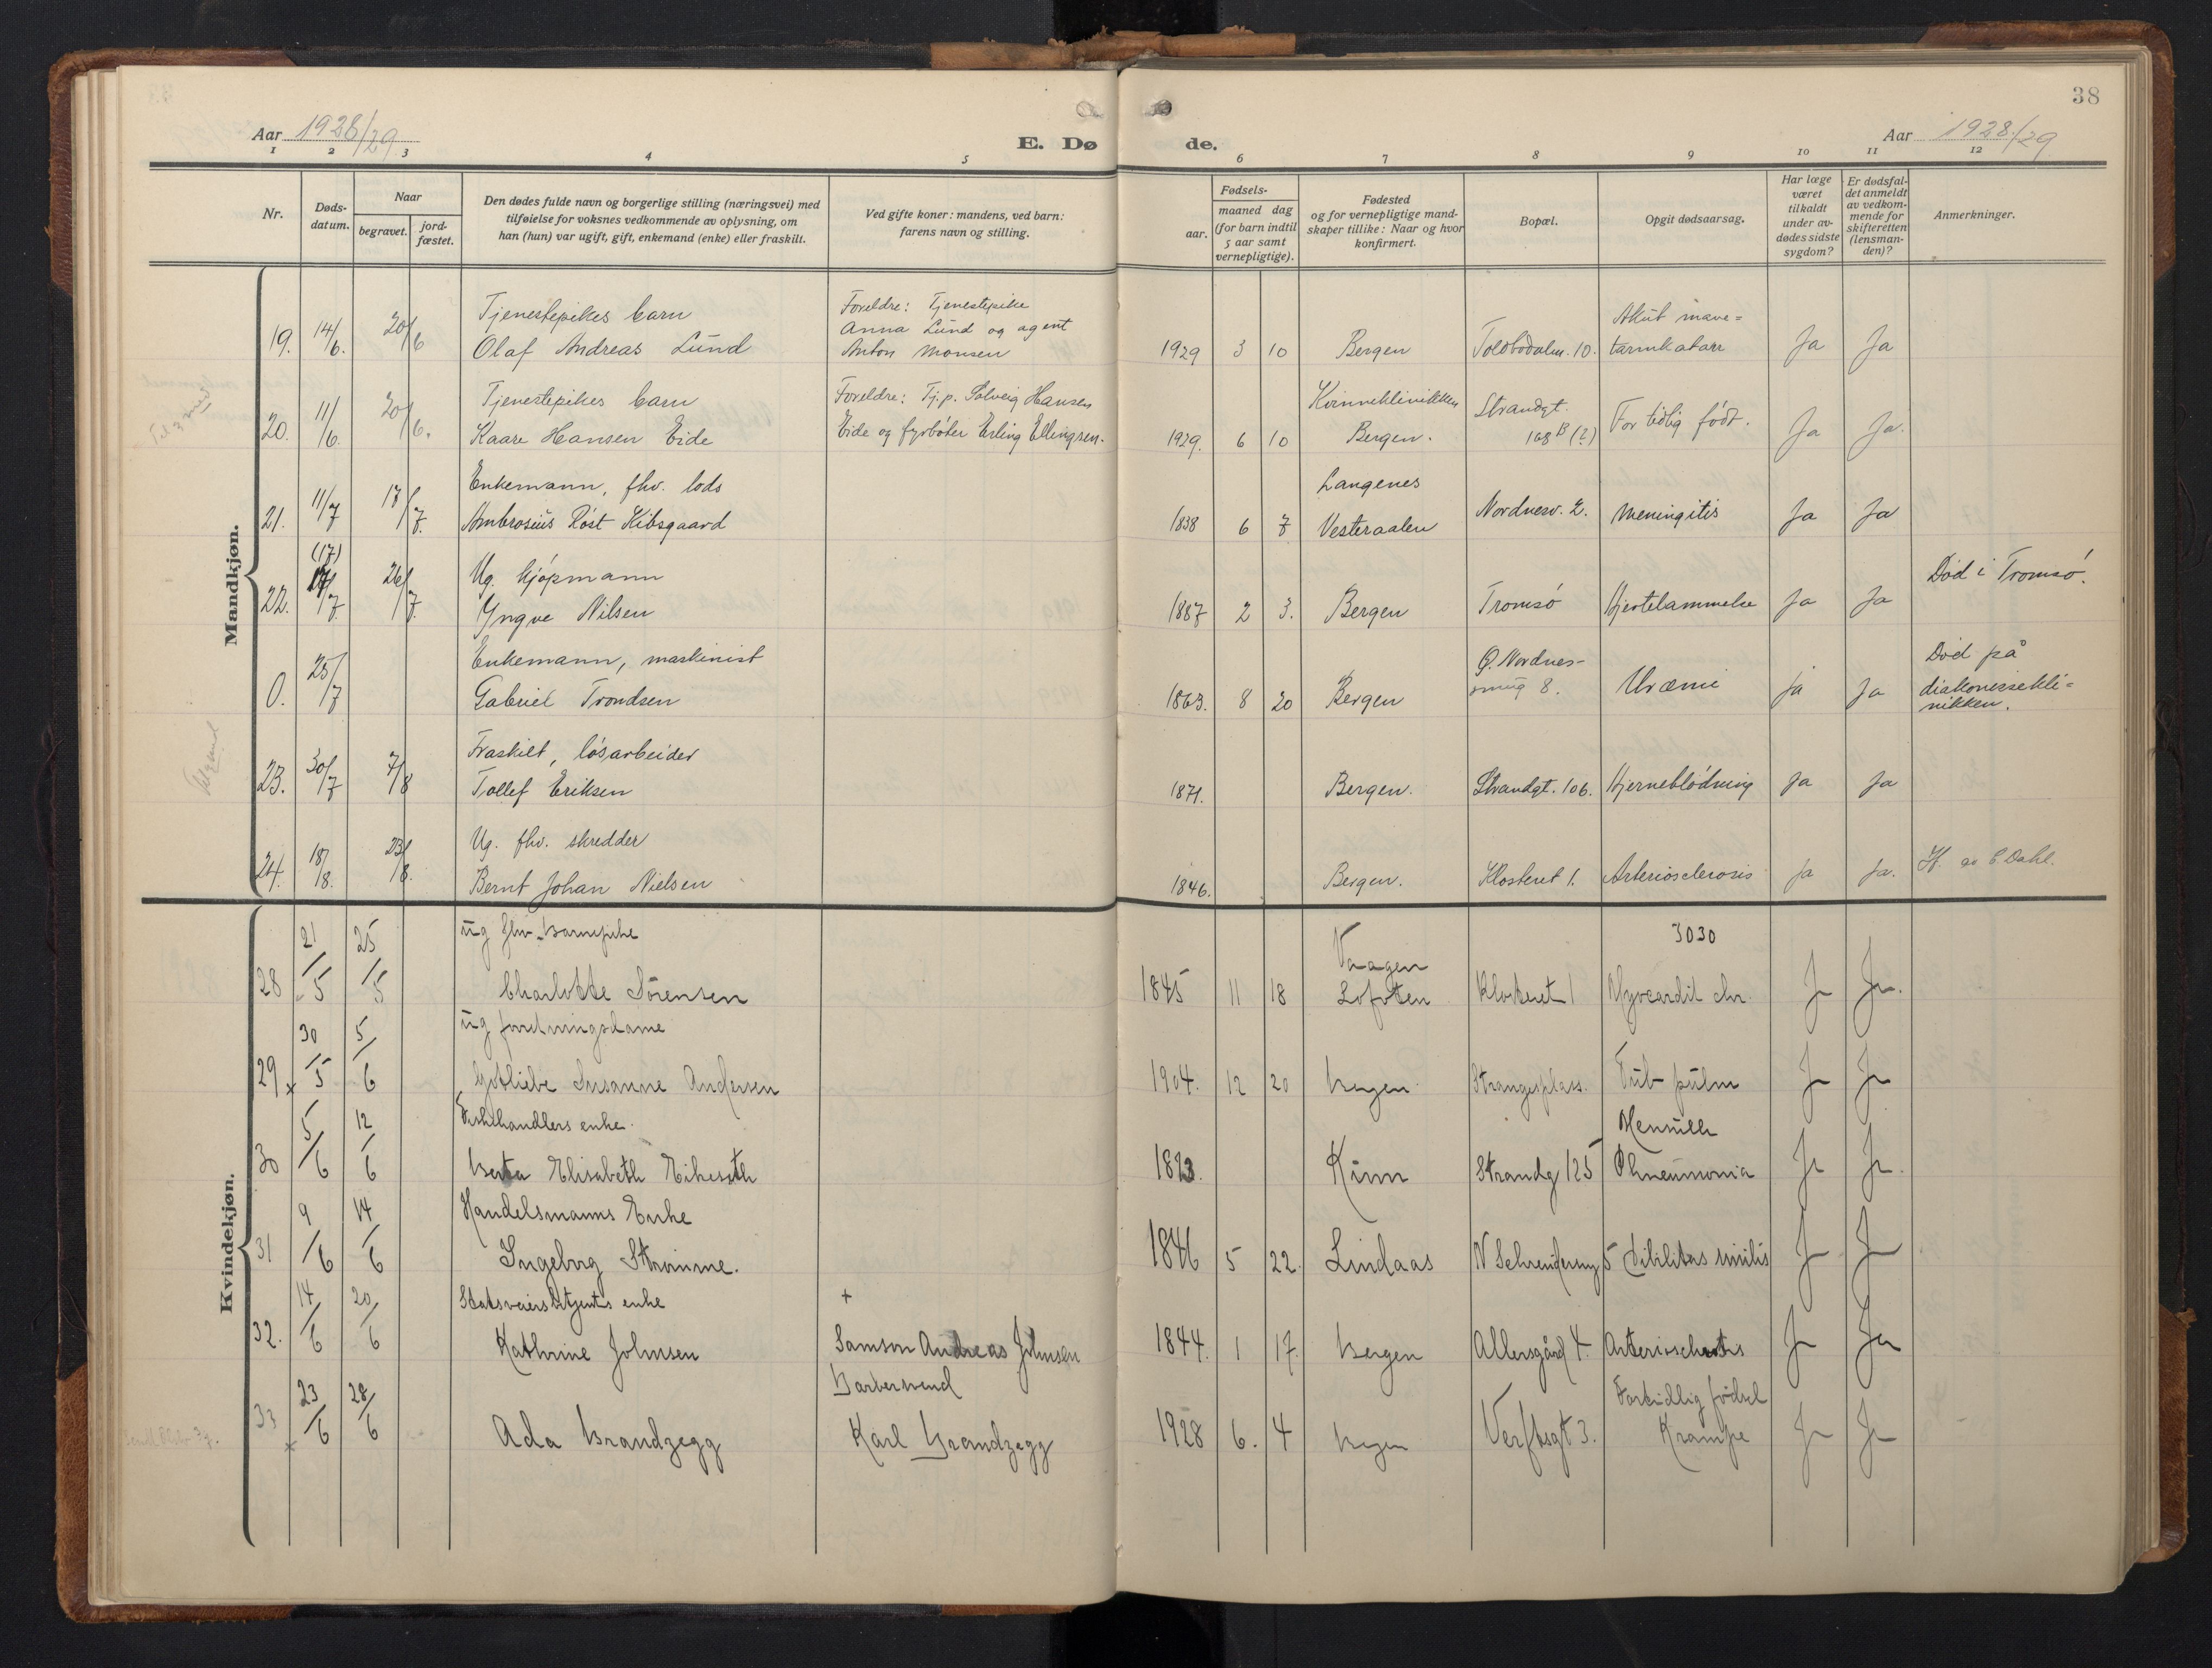 38
Aar 1928/29
E. Dø
de.
Aar 1928/29
1 2 3 4 5 6 7 8 9 10 11 12
Nr.
Døds-
datum.
Naar
begravet.
jord-
fæstet.
Den dødes fulde navn og borgerlige stilling (næringsvei) med
tilføielse for voksnes vedkommende av oplysning, om
han (hun) var ugift, gift, enkemand (enke) eller fraskilt.
Ved gifte koner: mandens, ved barn:
farens navn og stilling.
Fødsels-
aar.
maaned dag
(for barn indtil
5 aar samt
vernepligtige).
Fødested
og for vernepligtige mand-
skaper tillike: Naar og hvor
konfirmert.
Bopæl.
Opgit dødsaarsag.
Har læge
været
tilkaldt
under av-
dødes sidste
sygdom?
Er dødsfal-
det anmeldt
av vedkom-
mende for
skifteretten
(lensman-
den)?
Anmerkninger.
Mandkjøn.
Tjenestepikes barn
Foreldre: Tjenestepike
Anna Lund og agent
Akut mave=
19. 14/6. 20/6 Olaf Andreas Lund Anton Monsen 1929 3 10 Bergen Toldbodalm. 10. tarmkatarr Ja Ja
Tjenestepikes barn Foreldre: Tj.p. Solveig Hansen Kvinneklinikken Strandgt.
20. 11/6. 20/6. Kaare Hansen Eide Eide og fyrbøter Erling Ellingsen. 1929. 6 10 Bergen. 168 B (?) For tidlig født. Ja Ja.
Enkemann, fhv. lods Langenes
21. 11/7 17/7. Ambrosius Røst Kibsgaard 1838 6 7 Vesteraalen Nordnesv. 2. Meningitis Ja Ja
(17)
Ug. kjøpmann Død i Tromsø.
22. 17/7. 26/7. Yngve Nilsen 1887 2 3. Bergen Tromsø Hjertelammelse Ja Ja
Enkemann, maskinist Ø. Nordnes- Død på
0. 25/7 Gabriel Trondsen 1863. 8 20 Bergen smug 8. Uræmi ja Ja diakonissekli=
nikken.
Fraskilt, løsarbeider
23. 30/7 7/8 Tollef Eriksen 1871. Bergen. Strandgt. 106. Hjerneblødning Ja Ja
Ug. fhv. skredder
24. 18/8. 23/8. Bernt Johan Nielsen 1846. Bergen. Klosteret 1. Arteriosclerosis Ja Ja. Dahl.
Kvindekjøn.
ug fhv. Barnepike Vaagen 3030
28 21/5 25/5 Charlotte Sørensen 1845 11 18 Lofoten Klosteret 1 Myocardit chr. Ja Ja.
ug forretningsdame
29 x 30/5 5/6 Gotliebe Susanne Andersen 1904. 12 20 Bergen. Strangesplass. Tub pulm Ja Ja
Fiskehandlers enke.
30 5/6 12/6 Berta Elisabeth Eikeseth Kinn Strandg 125 Phneumonia Ja Ja.
Handelsmanns Enke
31 9/6 14/6 Ingeborg Strømme. 1846 5 22. Lindaas 5 Ja Ja
enke +
32. 14/6 20/6 Kathrine Johnsen Samson Andreas Johnsen 1844. 1 17. Bergen 4. Ja Ja
Barbersvend Fortidlig fødsel
33 x 23/6 28/6 Ada Brandzegg Karl Brandzegg 1928 6. 4 Bergen Verftsgt 3. Krampe Ja Ja